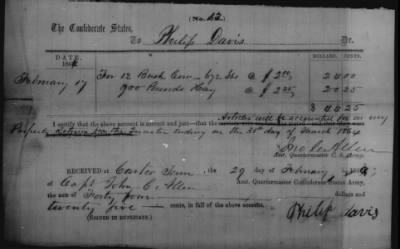 (No. 62
The Confederate States,
To Philip Davis Dr.
DATE. DOLLARS. CENTS.
186
February 17 For 12 Bush Corn @ $ 2.00 24 00
900 Pounds Hay @ $ 2.25 20 25
$ 44 25
I certify that the above account is correct and just—that the Articles will be accounted for on my
Property Return for the Quarter ending on the 31st day of March 1864
Jno C Allen
Asst. Quartermaster C. S. Army.
RECEIVED at the 29 day of February 186
of Capt John C. Allen Asst. Quartermaster Confederate States Army,
the sum of Forty four dollars and
twenty five cents, in full of the above account.
(SIGNED IN DUPLICATE.) Philip Davis